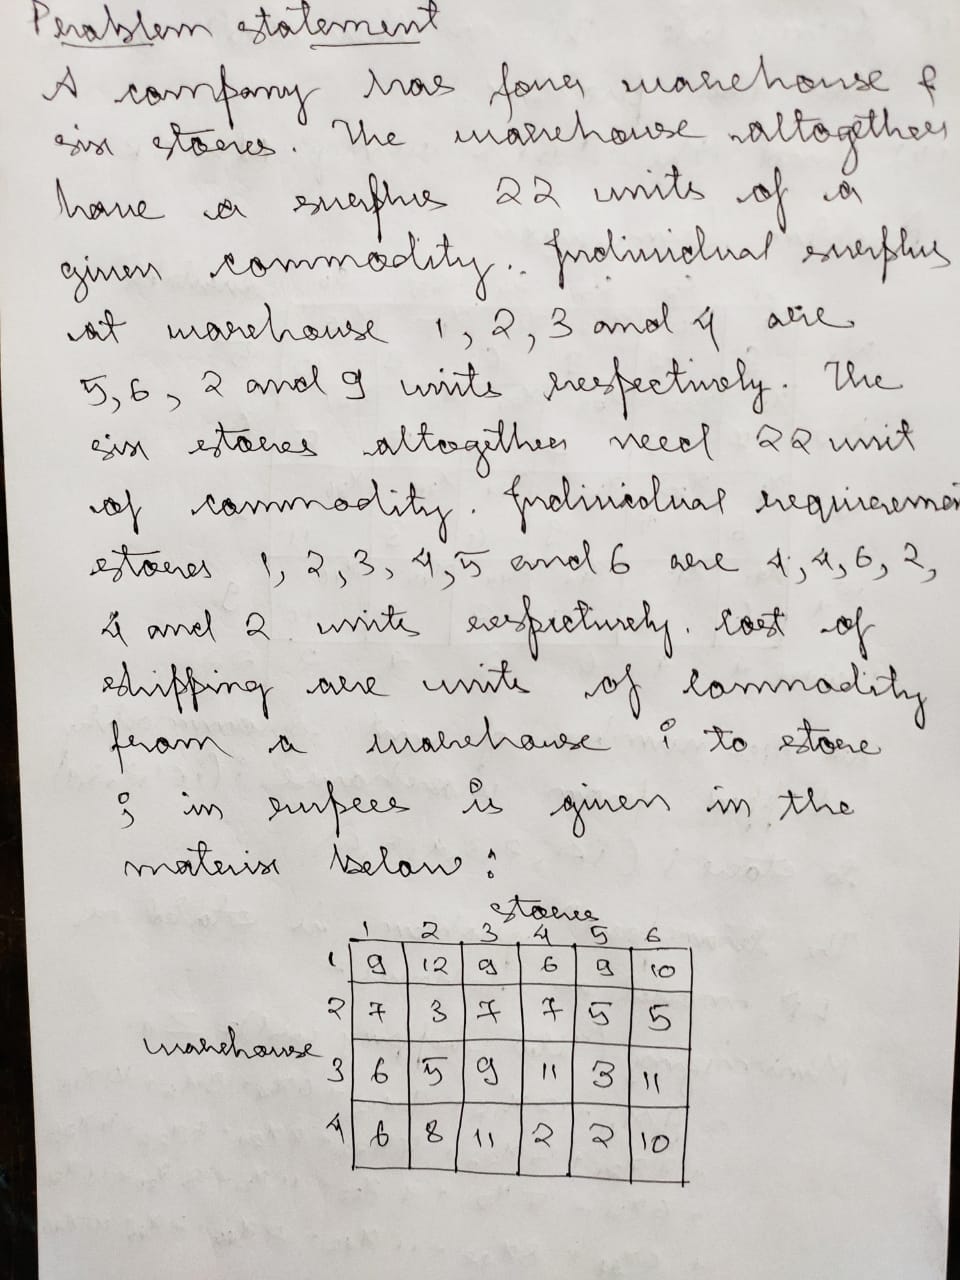 Problem statement
A company has four warehouse &
six stores. The warehouse altogether
have a surplus 22 units of a
given commodity. Individual surplus
at warehouse 1, 2, 3 and 4 are
5, 6, 2 and 9 units respectively. The
six stores altogether need 22 unit
of commodity. Individual requiremen
stores 1, 2, 3, 4, 5 and 6 are 4, 4, 6, 2,
4 and 2 units respectively. cost of
shipping are units of commodity
from a warehouse i to store
j in rupees is given in the
matrix below:
stores
1 2 3 4 5 6
1 9 12 9 6 9 10
2 7 3 7 7 5 5
warehouse
3 6 5 9 11 3 11
4 6 8 11 2 2 10